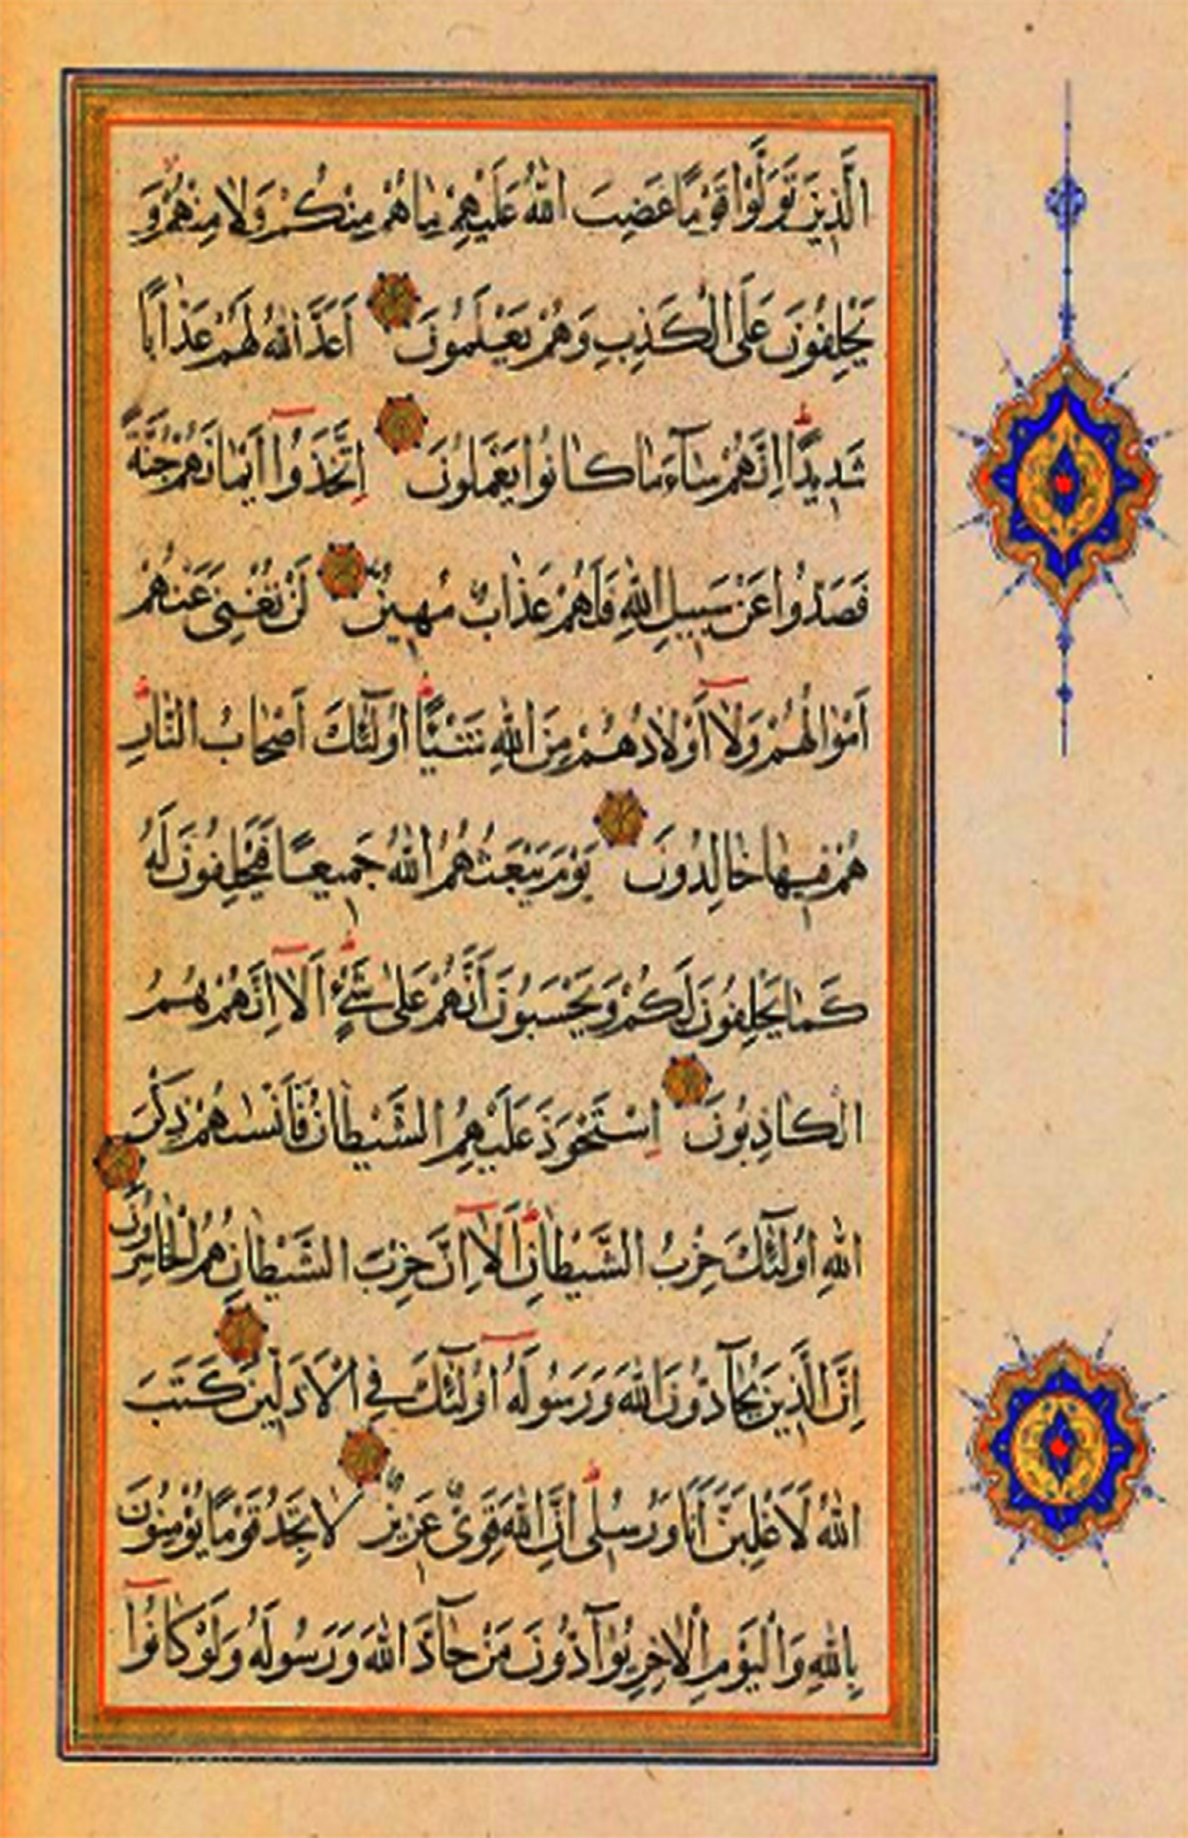 الَّذِينَ تَوَلَّوْا قَوْمًا غَضِبَ اللهُ عَلَيْهِمْ مَا هُمْ مِنْكُمْ وَلَا مِنْهُمْ وَ
يَحْلِفُونَ عَلَى الْكَذِبِ وَهُمْ يَعْلَمُونَ اَعَدَّ اللهُ لَهُمْ عَذَابًا
شَدِيدًا اِنَّهُمْ سَآءَ مَا كَانُوا يَعْمَلُونَ اِتَّخَذُوا اَيْمَانَهُمْ جُنَّةً
فَصَدُّوا عَنْ سَبِيلِ اللهِ فَلَهُمْ عَذَابٌ مُهِينٌ لَنْ تُغْنِىَ عَنْهُمْ
اَمْوَالُهُمْ وَلَا اَوْلَادُهُمْ مِنَ اللهِ شَيْئًا اُولٰٓئِكَ اَصْحَابُ النَّارِ
هُمْ فِيهَا خَالِدُونَ يَوْمَ يَبْعَثُهُمُ اللهُ جَمِيعًا فَيَحْلِفُونَ لَهُ
كَمَا يَحْلِفُونَ لَكُمْ وَيَحْسَبُونَ اَنَّهُمْ عَلٰى شَىْءٍ اَلَا اِنَّهُمْ هُمُ
الْكَاذِبُونَ اِسْتَحْوَذَ عَلَيْهِمُ الشَّيْطَانُ فَاَنْسٰهُمْ ذِكْرَ
اللهِ اُولٰٓئِكَ حِزْبُ الشَّيْطَانِ اَلَا اِنَّ حِزْبَ الشَّيْطَانِ هُمُ الْخَاسِرُونَ
اِنَّ الَّذِينَ يُحَآدُّونَ اللهَ وَرَسُولَهُ اُولٰٓئِكَ فِى الْاَذَلِّينَ كَتَبَ
اللهُ لَاَغْلِبَنَّ اَنَا وَرُسُلِى اِنَّ اللهَ قَوِىٌّ عَزِيزٌ لَا تَجِدُ قَوْمًا يُؤْمِنُونَ
بِاللهِ وَالْيَوْمِ الْاٰخِرِ يُوَآدُّونَ مَنْ حَآدَّ اللهَ وَرَسُولَهُ وَلَوْ كَانُوا